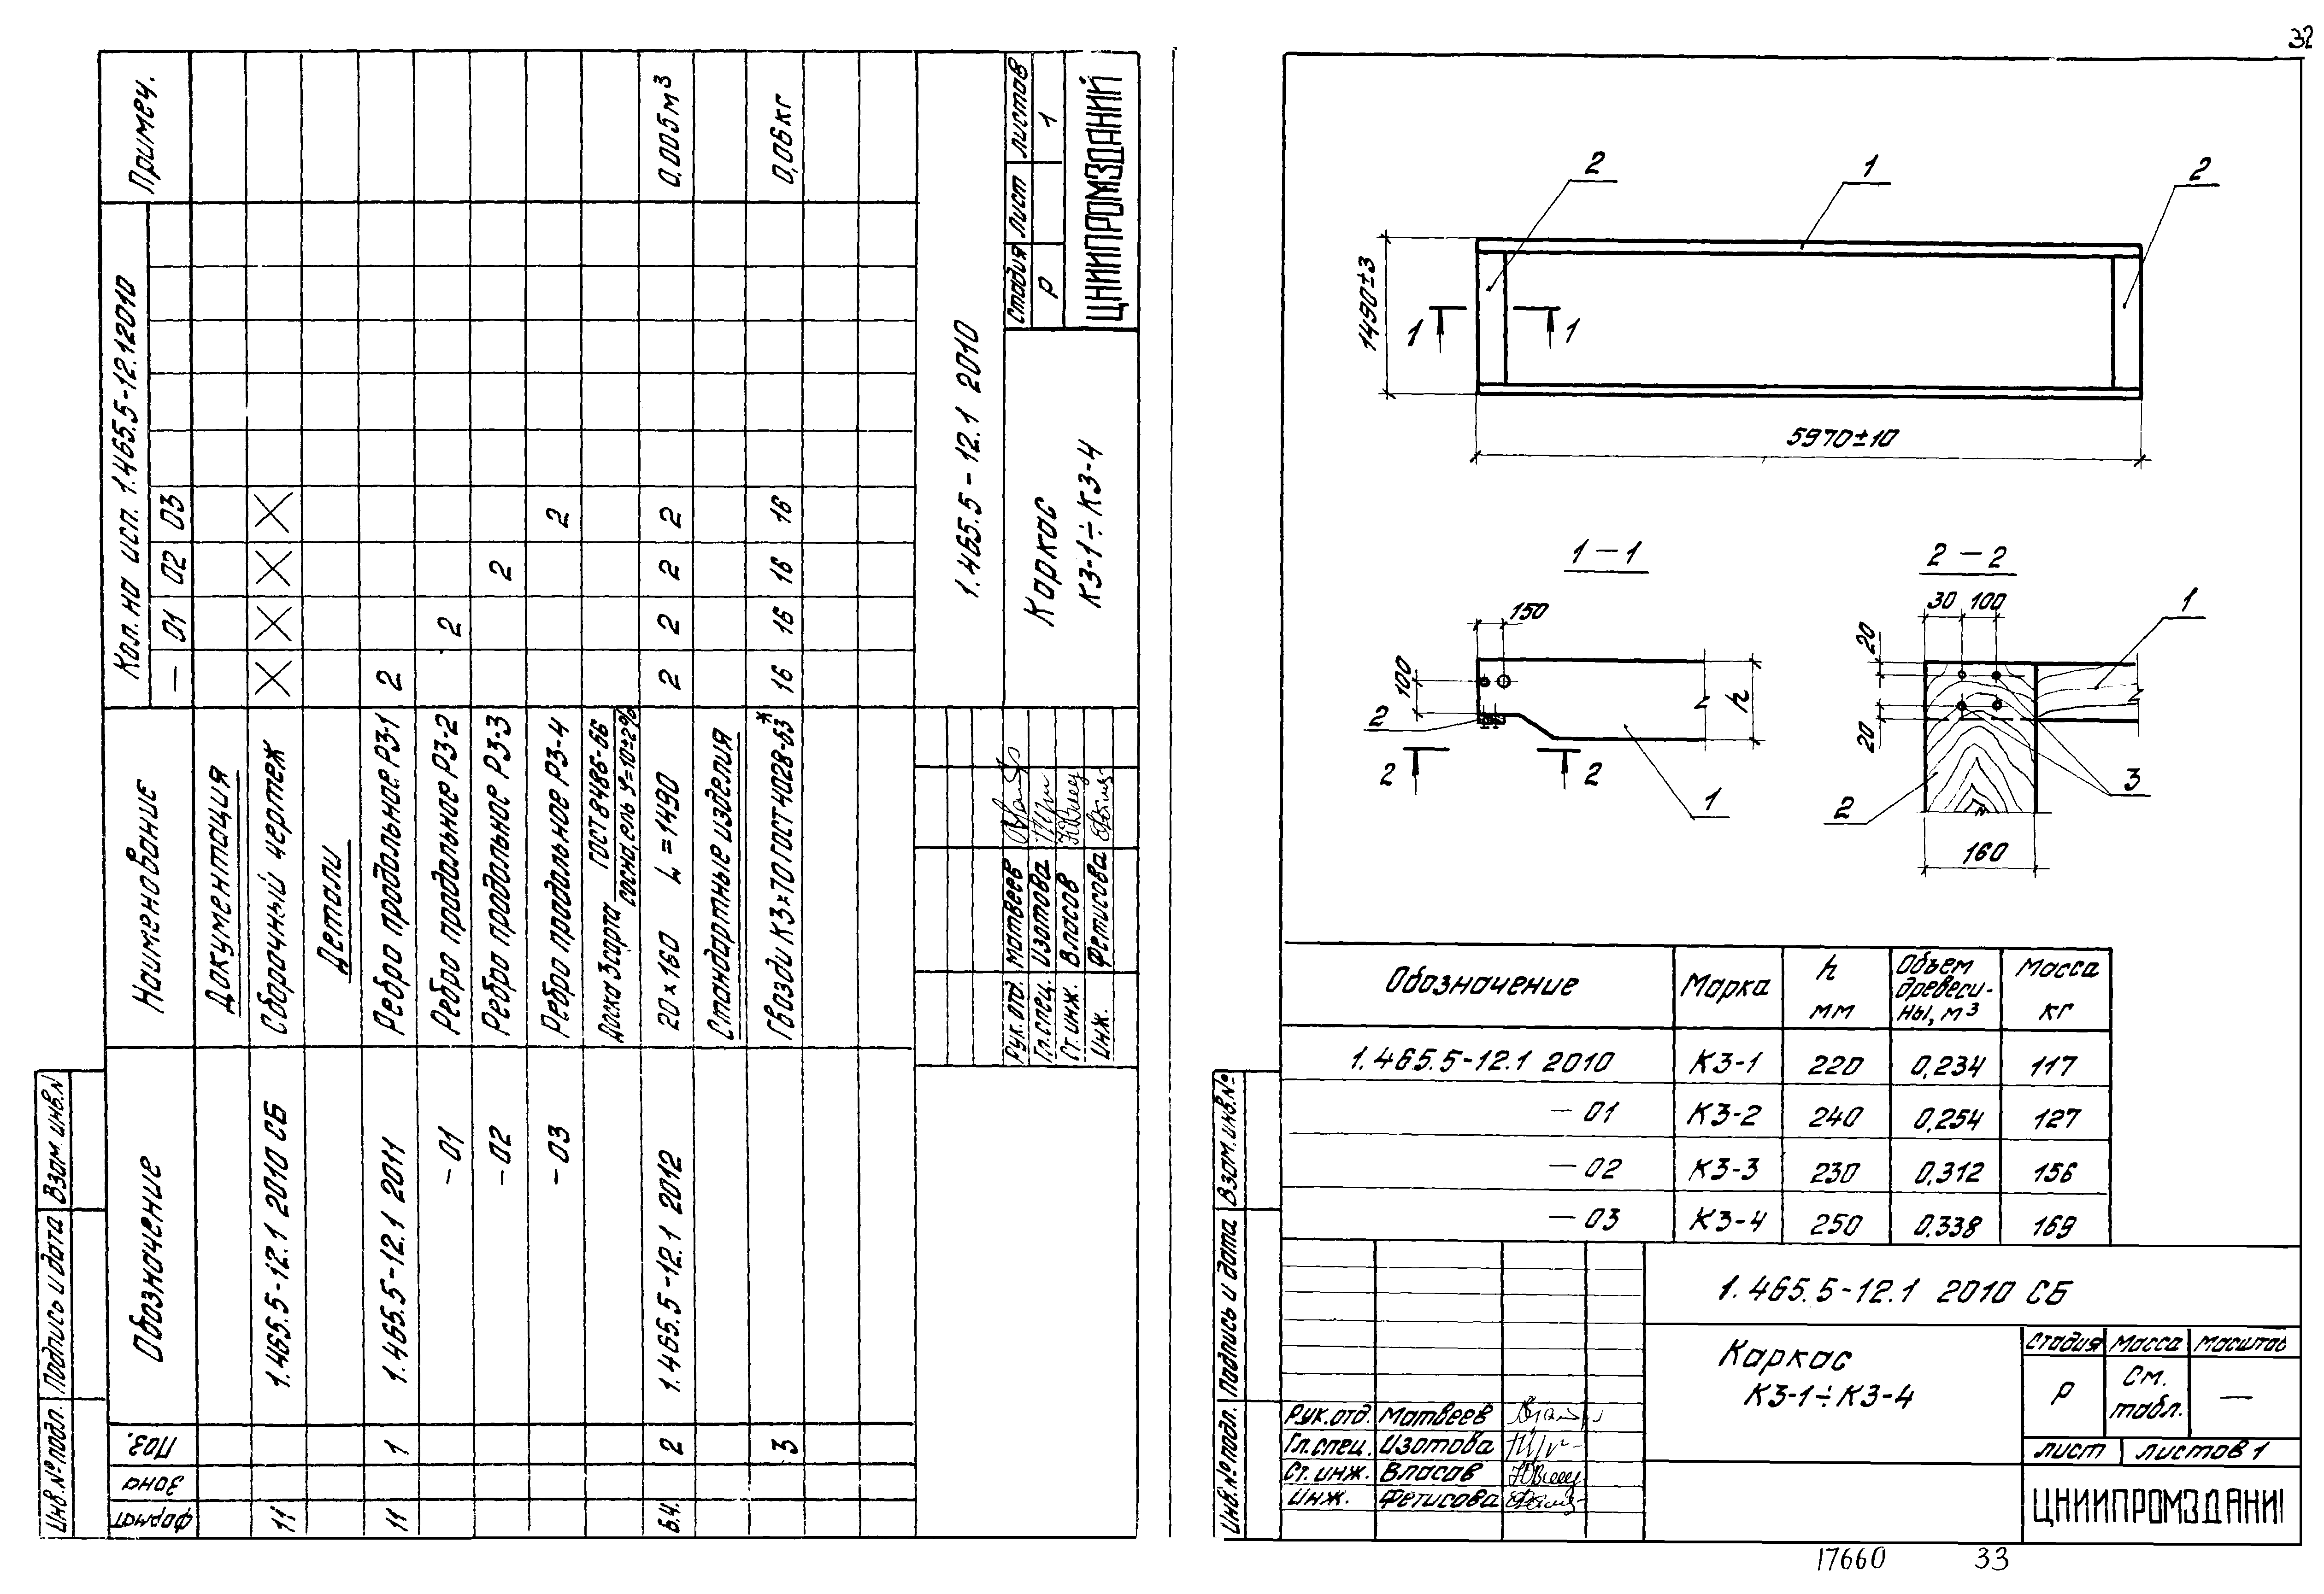 32
Формат Зона Поз. Обозначение Наименование Кол. на исп. 1.465.5-12.12010 Примеч.
— 01 02 03
Документация
11 1.465.5-12.1 2010 СБ Сборочный чертеж X X X X
Детали
11 1 1.465.5-12.1 2011 Ребро продольное Р3-1 2
-01 Ребро продольное Р3-2 2
-02 Ребро продольное Р3-3 2
-03 Ребро продольное Р3-4 2
Доска 3 сорта ГОСТ 8486-66
сосна, ель φ=10±2%
Б.Ч. 2 1.465.5-12.1 2012 20×160 L=1490 2 2 2 2 0,005 м³
Стандартные изделия
3 Гвозди К3×70 ГОСТ 4028-63* 16 16 16 16 0,06 кг
1.465.5-12.1 2010
Рук. отд. Матвеев
Гл. спец. Изотова
Ст. инж. Власов
Инж. Фетисова
Каркас
К3-1÷К3-4
Стадия Лист Листов
Р 1
ЦНИИПРОМЗДАНИЙ
Инв.№ подл. Подпись и дата Взам. инв.N
2 1 2
1490±3
1 1
5970±10
1-1
150
100
h
2
2 2
1
2-2
30 100
20
20
1
3
2
160
Обозначение Марка h мм Объем древеси-ны, м³ Масса кг
1.465.5-12.1 2010 К3-1 220 0,234 117
— 01 К3-2 240 0,254 127
— 02 К3-3 230 0,312 156
— 03 К3-4 250 0,338 169
1.465.5-12.1 2010 СБ
Каркас
К3-1÷К3-4
Стадия Масса Масштаб
Р См. табл. —
Лист Листов 1
Рук. отд. Матвеев
Гл. спец. Изотова
Ст. инж. Власов
Инж. Фетисова
ЦНИИПРОМЗДАНИ
Инв.№ подл. Подпись и дата Взам. инв.№
17660 33